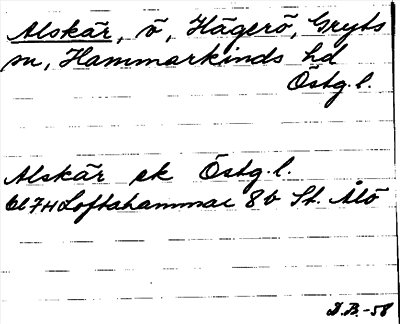 Alskär, ö, Hägerö, Gryts
sn, Hammarkinds hd
Östg.l.
Alskär ek Östg.l.
6l7H Loftahammar 8b St. Ålö
D.B.-58